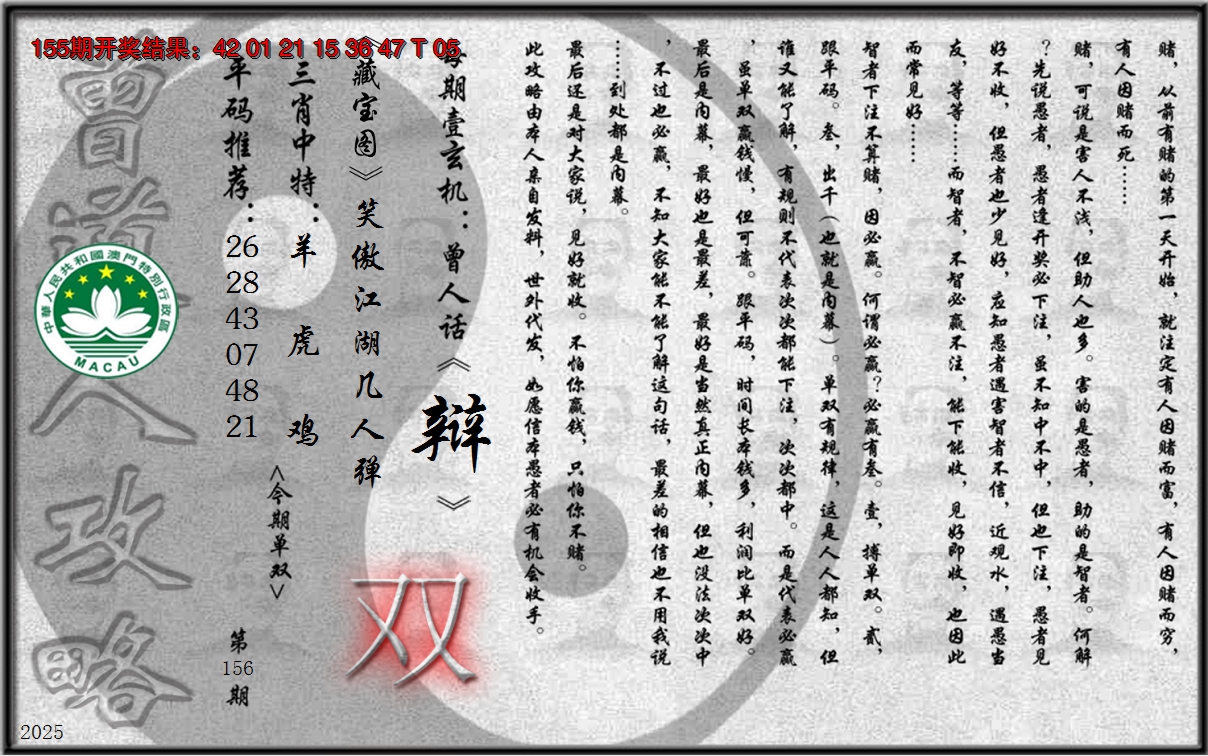 155期开奖结果：42 01 21 15 36 47 T 05
赌，从前有赌的第一天开始，就注定有人因赌而富，有人因赌而穷，
有人因赌而死……
赌，可说是害人不浅，但助人也多。害的是愚者，助的是智者。何解
？先说愚者，愚者逢开奖必下注，虽不知中不中，但也下注，愚者见
好不收，但愚者也少见好，应知愚者遇害智者不信，近观水，遇愚当
友，等等……而智者，不智必赢不注，能下能收，见好即收，也因此
而常见好……
智者下注不算赌，因必赢。何谓必赢？必赢有叁。壹，搏单双。贰，
跟平码。叁，出千（也就是内幕）。单双有规律，这是人人都知，但
谁又能了解，有规则不代表次次都能下注，次次都中。而是代表必赢
，虽单双赢钱慢，但可靠。跟平码，时间长本钱多，利润比单双好。
最后是内幕，最好也是最差，最好是当然真正内幕，但也没法次次中
，不过也必赢，不知大家能不能了解这句话，最差的相信也不用我说
……到处都是内幕。
最后还是对大家说，见好就收。不怕你赢钱，只怕你不赌。
此攻略由本人亲自发料，世外代发，如愿信本愚者必有机会收手。
每期壹玄机：曾人话《辩》
《藏宝图》笑傲江湖几人弹
双
三肖中特：羊 虎 鸡
<今期单双>
平码推荐：26 28 43 07 48 21
第156期
曾道人攻略
中華人民共和國澳門特別行政區
MACAU
2025